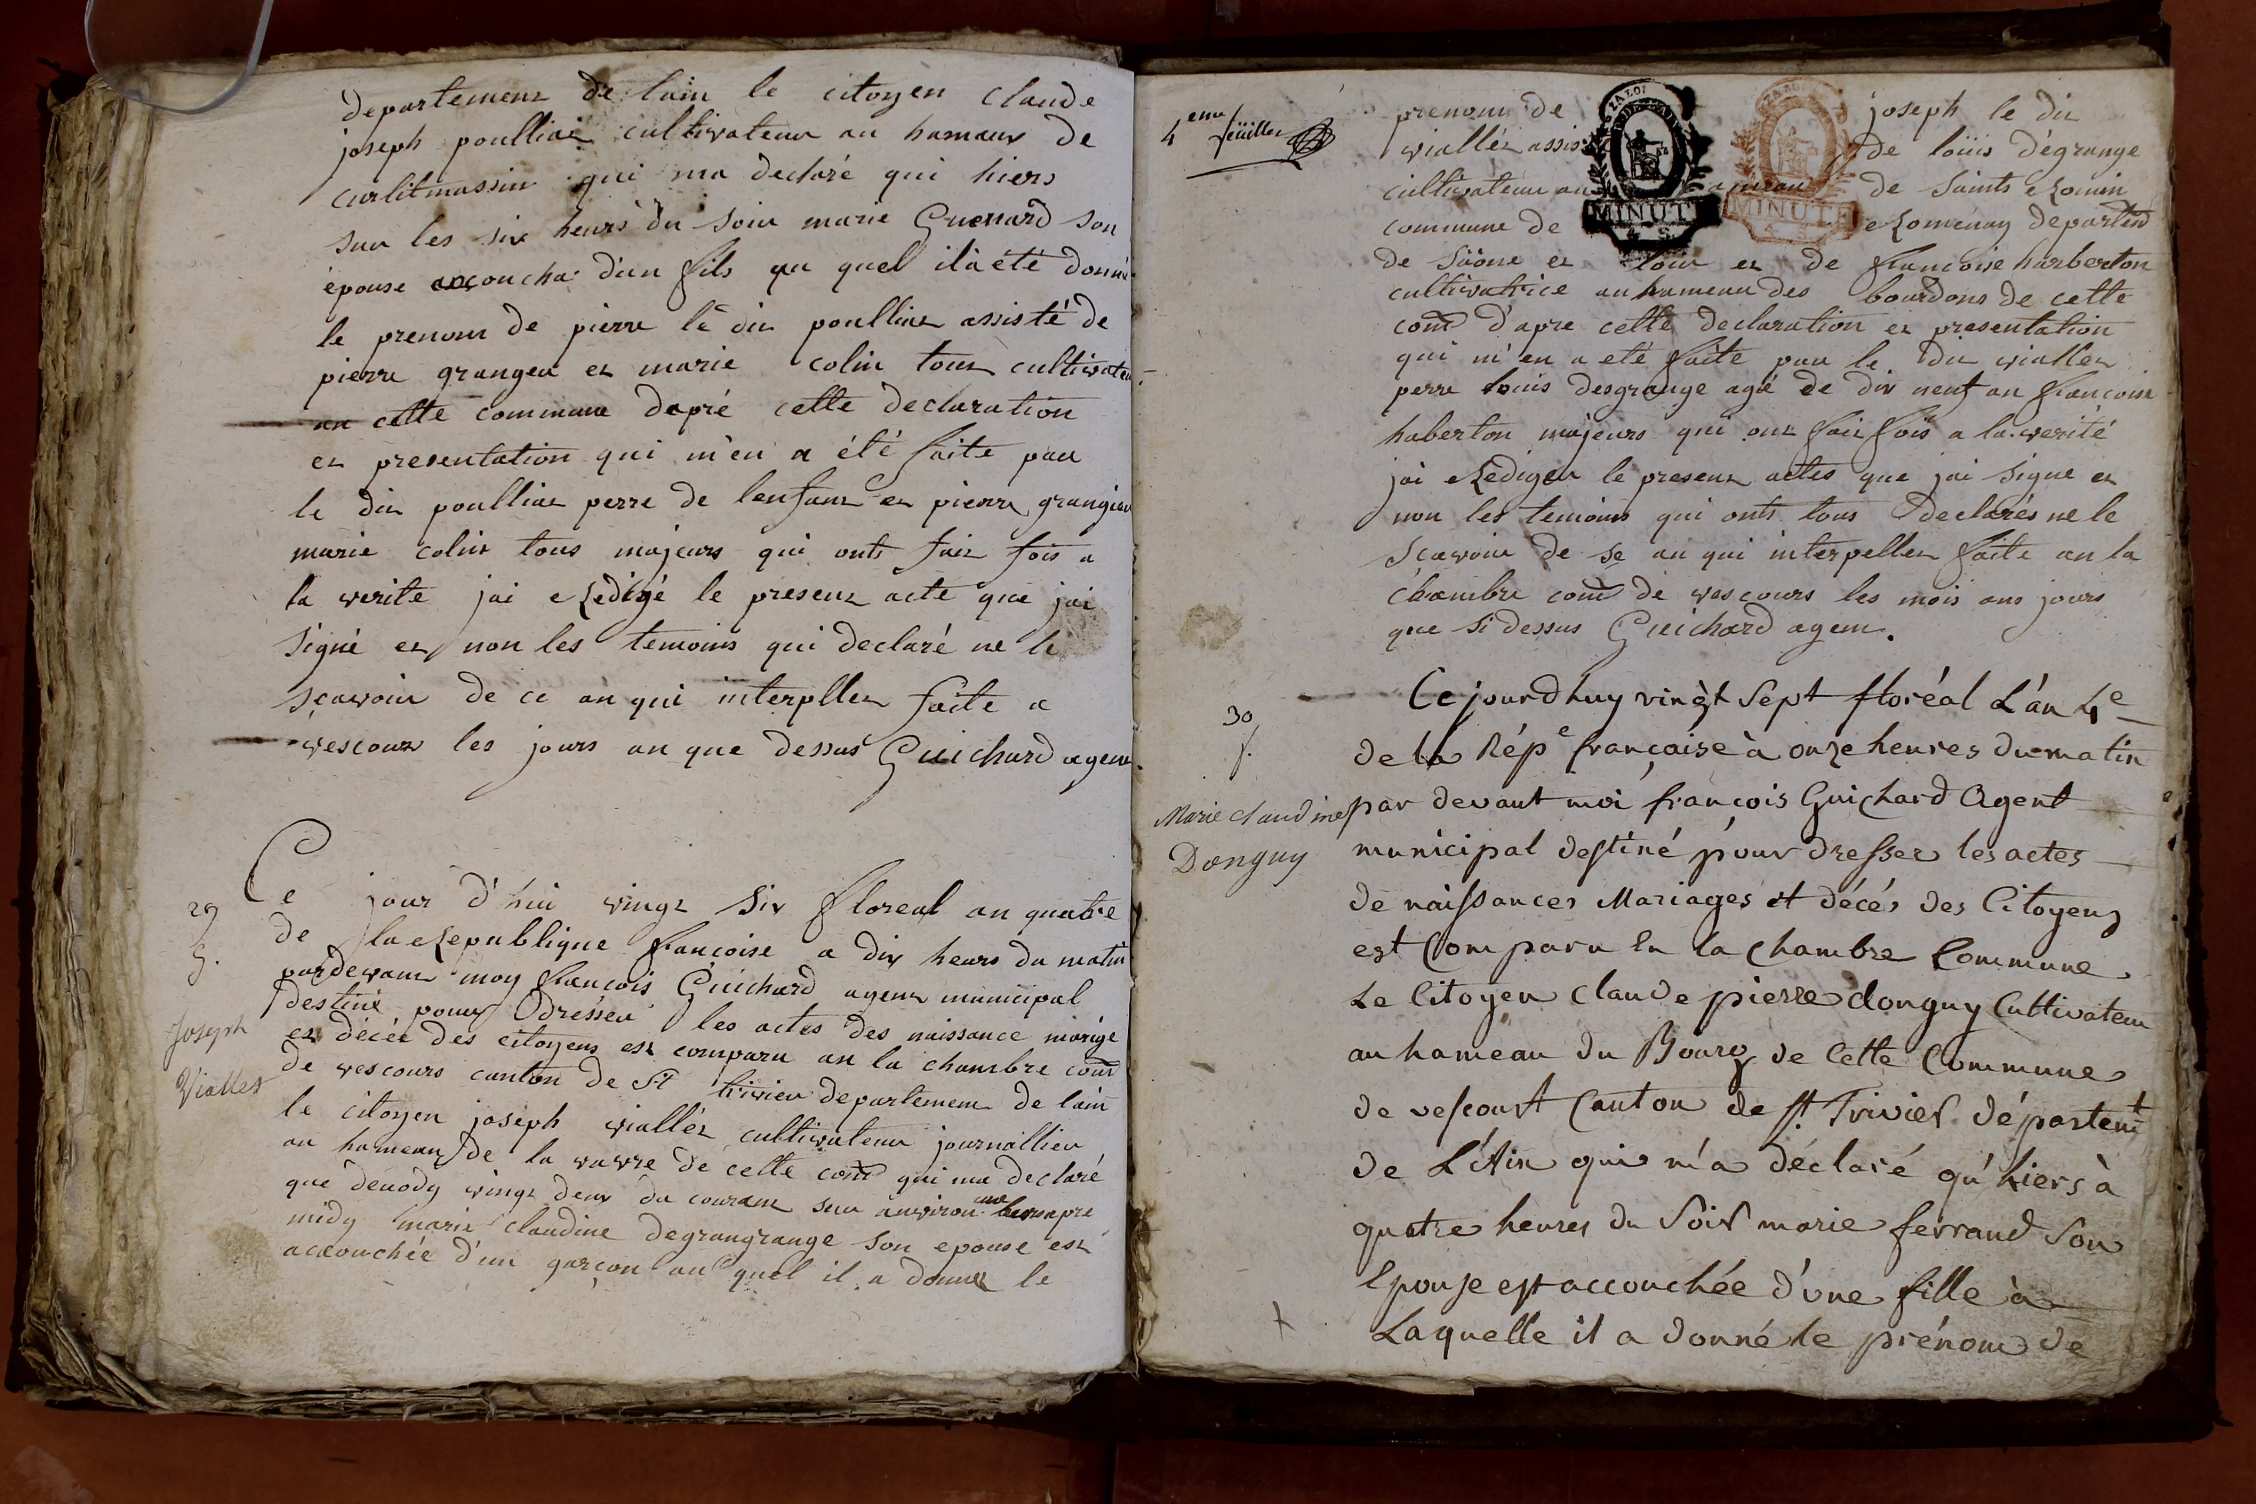 departement de lain le citoyen Claude
joseph poulliat cultivateur au hamaux de
curlitmassin qui ma declaré qui hiers
sur les six heurs du soir marie Guenard son
épouse accoucha d'un fils au quel il à été donné
le prenom de pierre le dit poulliat assisté de
pierre granger et marie colin tout cultivateur
an cette commune dapré cette declaration
et presentation qui m'en a été faite par
le dit poulliat perre de lenfant et pierre granger
marie colin tous majeurs qui onts fait fois a
la verite jai Redigé le present acte que jai
signé et non les temoins qui declaré ne le
sçavoir de ce an qui interpller faite a
vescours les jours an que dessus Guichard agent
29
g.
Joseph
Viallet
Ce jour d'hui vingt six floreal an quatre
de la Republique francoise a dix heurs du matin
pardevant moy francois Guichard agent municipal
destiné pour dresséer les actes des naissance mariage
et décée des citoyens est comparu an la chambre com
de vescours canton de St trivier departement de lain
le citoyen joseph viallét cultivateur journallier
au hameau de la vavre de cette com qui ma declaré
que denody vingt deux du courant sur anviron une heure apre
midy marie claudine degrangrange son epouse est
accouchée d'un garçon au quel il a donner le
4eme feüillet
prenom de joseph le dit
viallét assisté de loüis dégrange
cultivateur au hameau de Saints Romin
commune de Romenay departem
de Sâone et loir et de francoise harberton
cultivatrice au hameau des bourdons de cette
com d'apre cette declaration et presentation
qui m'en a eté faite par le dit viallet
perre louis desgrange agé de dix neuf an francoise
haberton majeurs qui ont fait fois a la verité
jai Rediger le present actes que jai signe et
non les temoins qui onts tous declarés ne le
sçavoir de se an qui interpeller faite an la
chambre com de vescours les mois ans jours
que si dessus Guichard agent.
MINUTE
MINUTE
30
f.
Marie Claudine
Donguy
Cejourdhuy vingt Sept floréal L'an 4e
de la Répe française à onze heures du matin
par devant moi françois Guichard Agent
municipal destiné pour dresser les actes
de naissances Mariages et décés des Citoyens
est Comparu En la Chambre Commune
Le Citoyen Claude pierre donguy Cultivateur
au hameau du Bourg de Cette Commune
de vescourt Canton de St. Trivier départemt
de L'Ain qui m'a déclaré qu'hiers à
quatre heures du Soir marie ferrand Son
Epouse est accouchée d'une fille à
Laquelle il a donné le prénom de